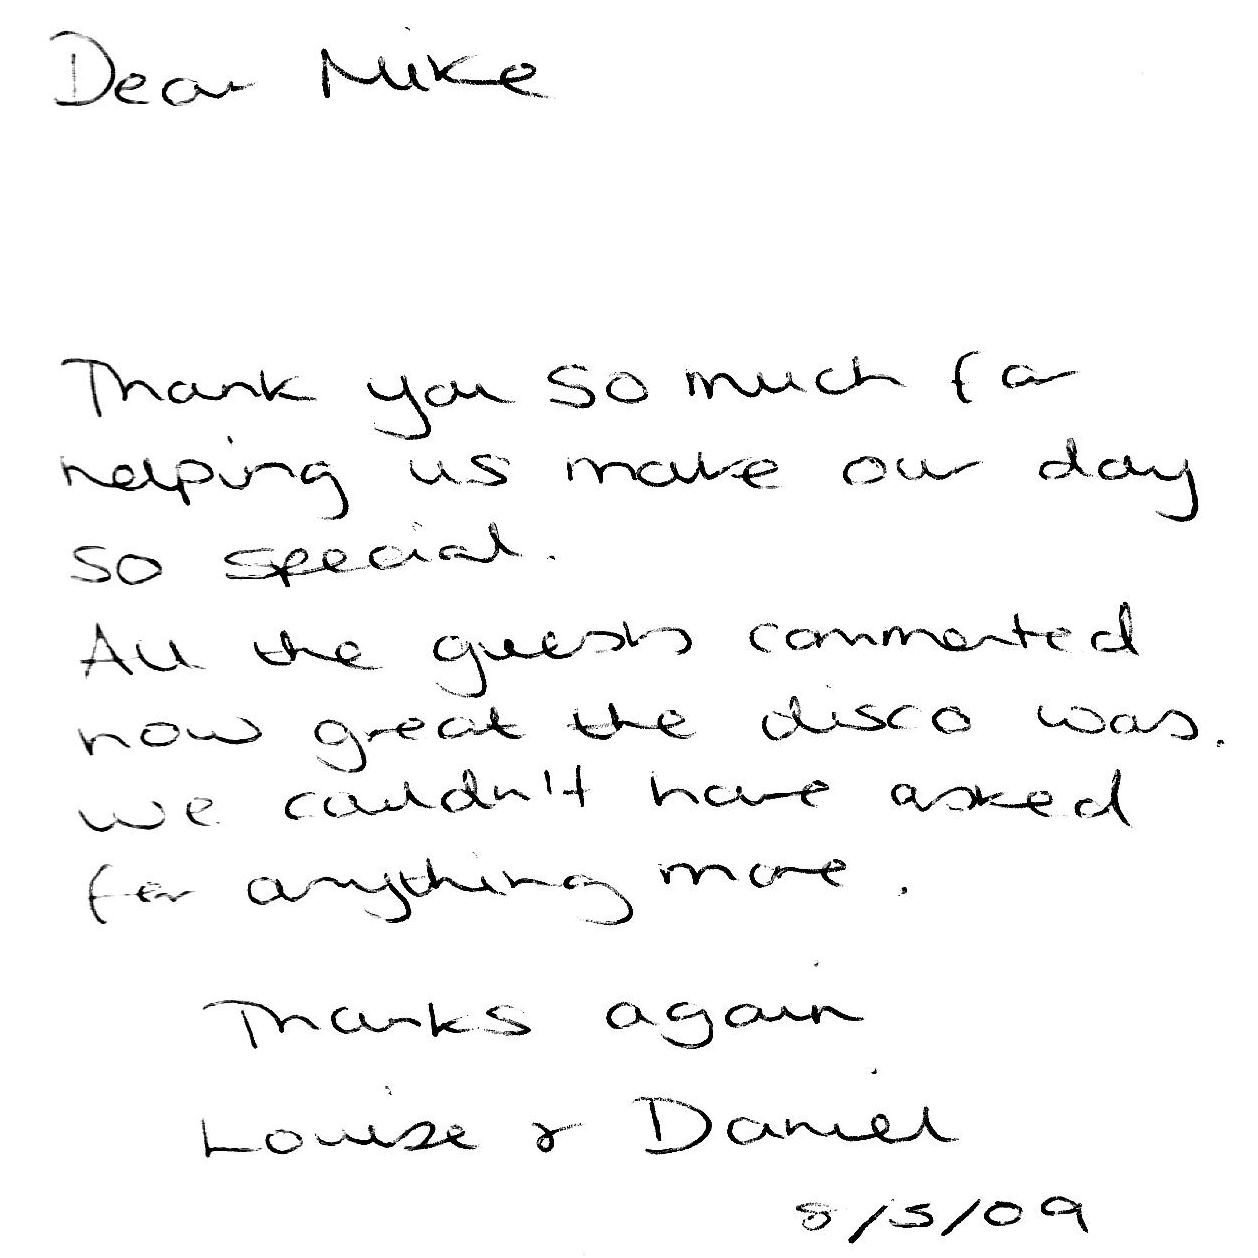 Dear Mike
Thank you so much for
helping us make our day
so special.
All the guests commented
how great the disco was.
We couldn't have asked
for anything more.
Thanks again
Louise & Daniel
8/5/09